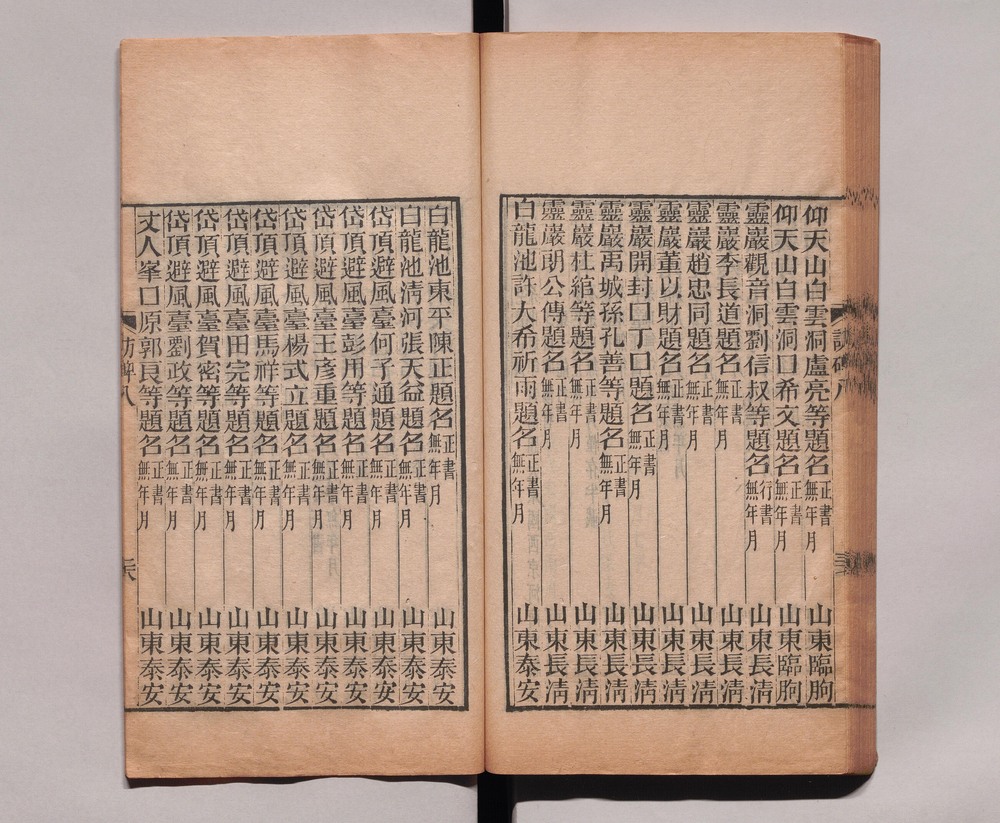 仰天山白雲洞盧亮等題名 正書無年月 山東臨朐
仰天山白雲洞口希文題名 正書無年月 山東臨朐
靈巖觀音洞劉信叔等題名 行書無年月 山東長淸
靈巖李長道題名 正書無年月 山東長淸
靈巖趙忠同題名 正書無年月 山東長淸
靈巖董以財題名 正書無年月 山東長淸
靈巖開封口丁口題名 正書無年月 山東長淸
靈巖禹城孫孔善等題名 正書無年月 山東長淸
靈巖杜綰等題名 正書無年月 山東長淸
靈巖朗公傳題名 正書無年月 山東長淸
白龍池許大希祈雨題名 正書無年月 山東泰安
白龍池東平陳正題名 正書無年月 山東泰安
白龍池淸河張天益題名 正書無年月 山東泰安
岱頂避風臺何子通題名 正書無年月 山東泰安
岱頂避風臺彭用等題名 正書無年月 山東泰安
岱頂避風臺王彥重題名 正書無年月 山東泰安
岱頂避風臺楊式立題名 正書無年月 山東泰安
岱頂避風臺馬祥等題名 正書無年月 山東泰安
岱頂避風臺田完等題名 正書無年月 山東泰安
岱頂避風臺賀密等題名 正書無年月 山東泰安
岱頂避風臺劉政等題名 正書無年月 山東泰安
丈人峯口原郭良等題名 正書無年月 山東泰安
訪碑八